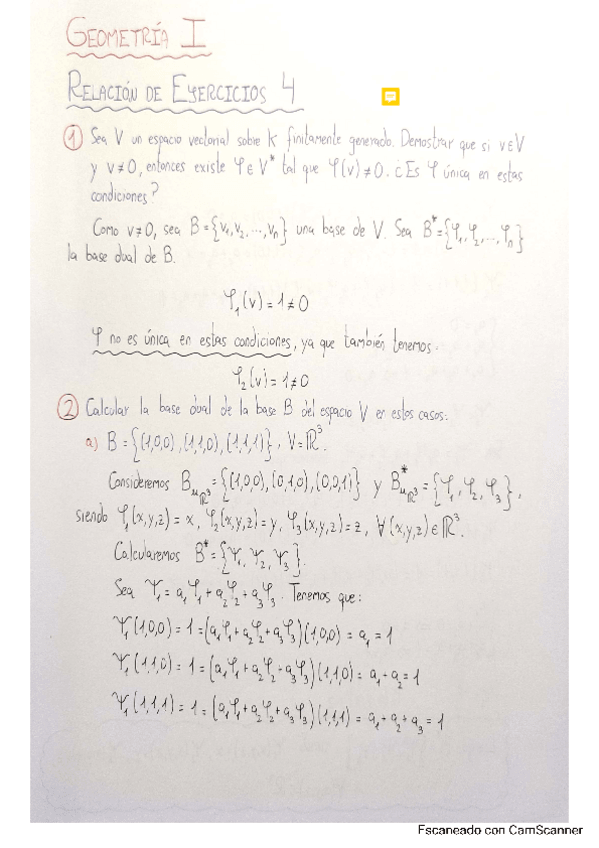 GEOMETRÍA I
RELACIÓN DE EJERCICIOS 4
1 Sea V un espacio vectorial sobre K finitamente generado. Demostrar que si v∈V
y v≠0, entonces existe φ∈V* tal que φ(v)≠0. ¿Es φ única en estas
condiciones?
Como v≠0, sea B={v₁,v₂,...,vₙ} una base de V. Sea B*={φ₁,φ₂,...,φₙ}
la base dual de B.
φ₁(v)=1≠0
φ no es única en estas condiciones, ya que también tenemos:
φ₂(v)=1≠0
2 Calcular la base dual de la base B del espacio V en estos casos:
a) B={(1,0,0),(1,1,0),(1,1,1)}, V=ℝ³.
Consideremos B_{u_ℝ³}={(1,0,0),(0,1,0),(0,0,1)} y B*_{u_ℝ³}={φ₁,φ₂,φ₃},
siendo φ₁(x,y,z)=x, φ₂(x,y,z)=y, φ₃(x,y,z)=z, ∀(x,y,z)∈ℝ³.
Calcularemos B*={Ψ₁,Ψ₂,Ψ₃}.
Sea Ψ₁=a₁φ₁+a₂φ₂+a₃φ₃. Tenemos que:
Ψ₁(1,0,0)=1=(a₁φ₁+a₂φ₂+a₃φ₃)(1,0,0)=a₁=1
Ψ₁(1,1,0)=1=(a₁φ₁+a₂φ₂+a₃φ₃)(1,1,0)=a₁+a₂=1
Ψ₁(1,1,1)=1=(a₁φ₁+a₂φ₂+a₃φ₃)(1,1,1)=a₁+a₂+a₃=1
Escaneado con CamScanner